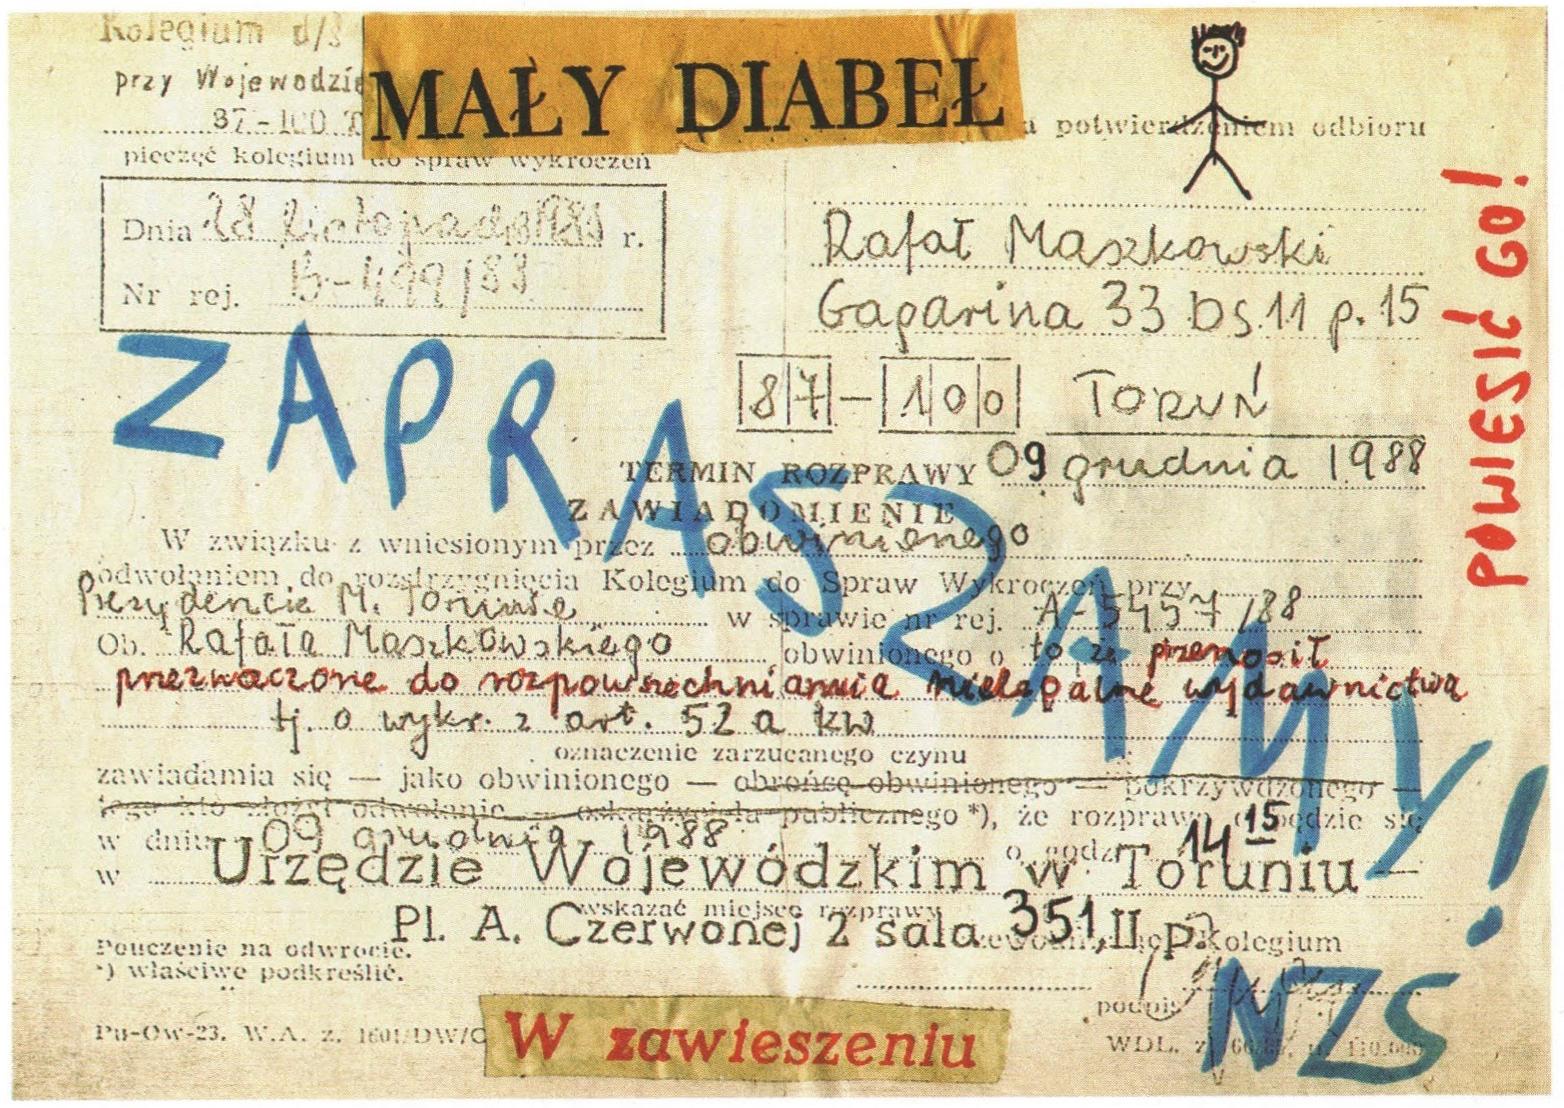 Kolegium d/s
MAŁY DIABEŁ
przy Wojewodzie
87-100 T
potwierdzeniem odbioru
pieczęć kolegium do spraw wykroczeń
Dnia 28 listopada 1988 r.
Nr rej.
Rafał Maszkowski
Gagarina 33 DS.11 p. 15
87-100 TORUŃ
POWIESIĆ GO!
ZAPRASZAMY!
TERMIN ROZPRAWY 09 grudnia 1988
ZAWIADOMIENIE
W związku z wniesionym przez obwinionego
odwołaniem do rozstrzygnięcia Kolegium do Spraw Wykroczeń przy
Prezydencie M. Torunia w sprawie nr rej. A-5457/88
Ob. Rafała Maszkowskiego obwinionego o to że przenosił
przeznaczone do rozpowszechniania nielegalne wydawnictwa
tj. o wykr. z art. 52 a kw
oznaczenie zarzucanego czynu
zawiadamia się — jako obwinionego — obrońcę obwinionego — pokrzywdzonego —
tego kto złożył odwołanie — oskarżyciela publicznego *), że rozprawa odbędzie się
w dniu 09 grudnia 1988 o godz. 14 15
w Urzędzie Wojewódzkim w Toruniu
wskazać miejsce rozprawy
Pl. A. Czerwonej 2 sala 351, II p.
kolegium
Pouczenie na odwrocie.
*) właściwe podkreślić.
podpis
NZS
Pu-Ow-23. W.A. z. 1601/DW/
W zawieszeniu
WDL. z.